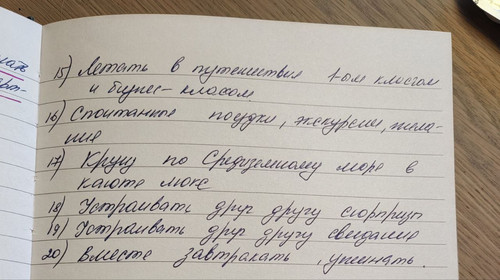 15) Летать в путешествия 1-ым классом
и бизнес-классом.
16) Спонтанные поездки, экскурсии, жела-
ния
17) Круиз по Средиземному морю в
каюте люкс
18) Устраивать друг другу сюрпризы
19) Устраивать друг другу свидания
20) Вместе завтракать, ужинать.